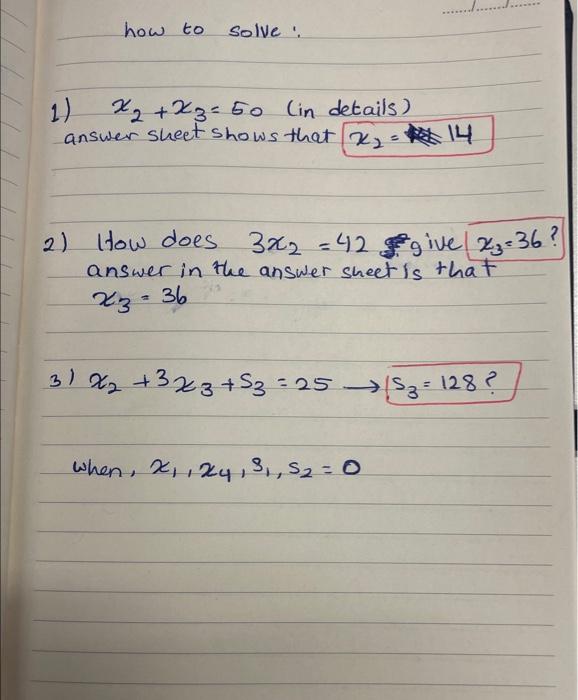 how to solve:
1) x₂ + x₃ = 50 (in details)
answer sheet shows that x₂ = 14
2) How does 3x₂ = 42 give x₃ = 36?
answer in the answer sheet is that
x₃ = 36
3) x₂ + 3x₃ + S₃ = 25 → S₃ = 128?
when, x₁, x₄, S₁, S₂ = 0